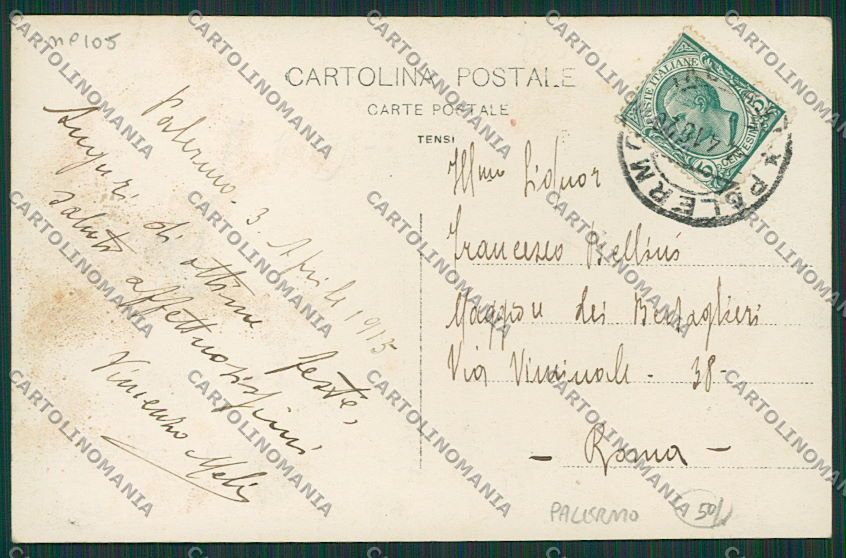 MP105
CARTOLINA POSTALE
CARTE POSTALE
TENSI
Palermo - 3. Aprile 1915
Auguri di ottime feste,
saluti affettuosissimi
Vincenzo Meli
POSTE ITALIANE
CENTESIMI
PALERMO
Illmo Signor
Francesco Bellini
Maggiore dei Bersaglieri
Via Viminale - 38 -
- Roma -
PALERMO
50/
CARTOLINOMANIA